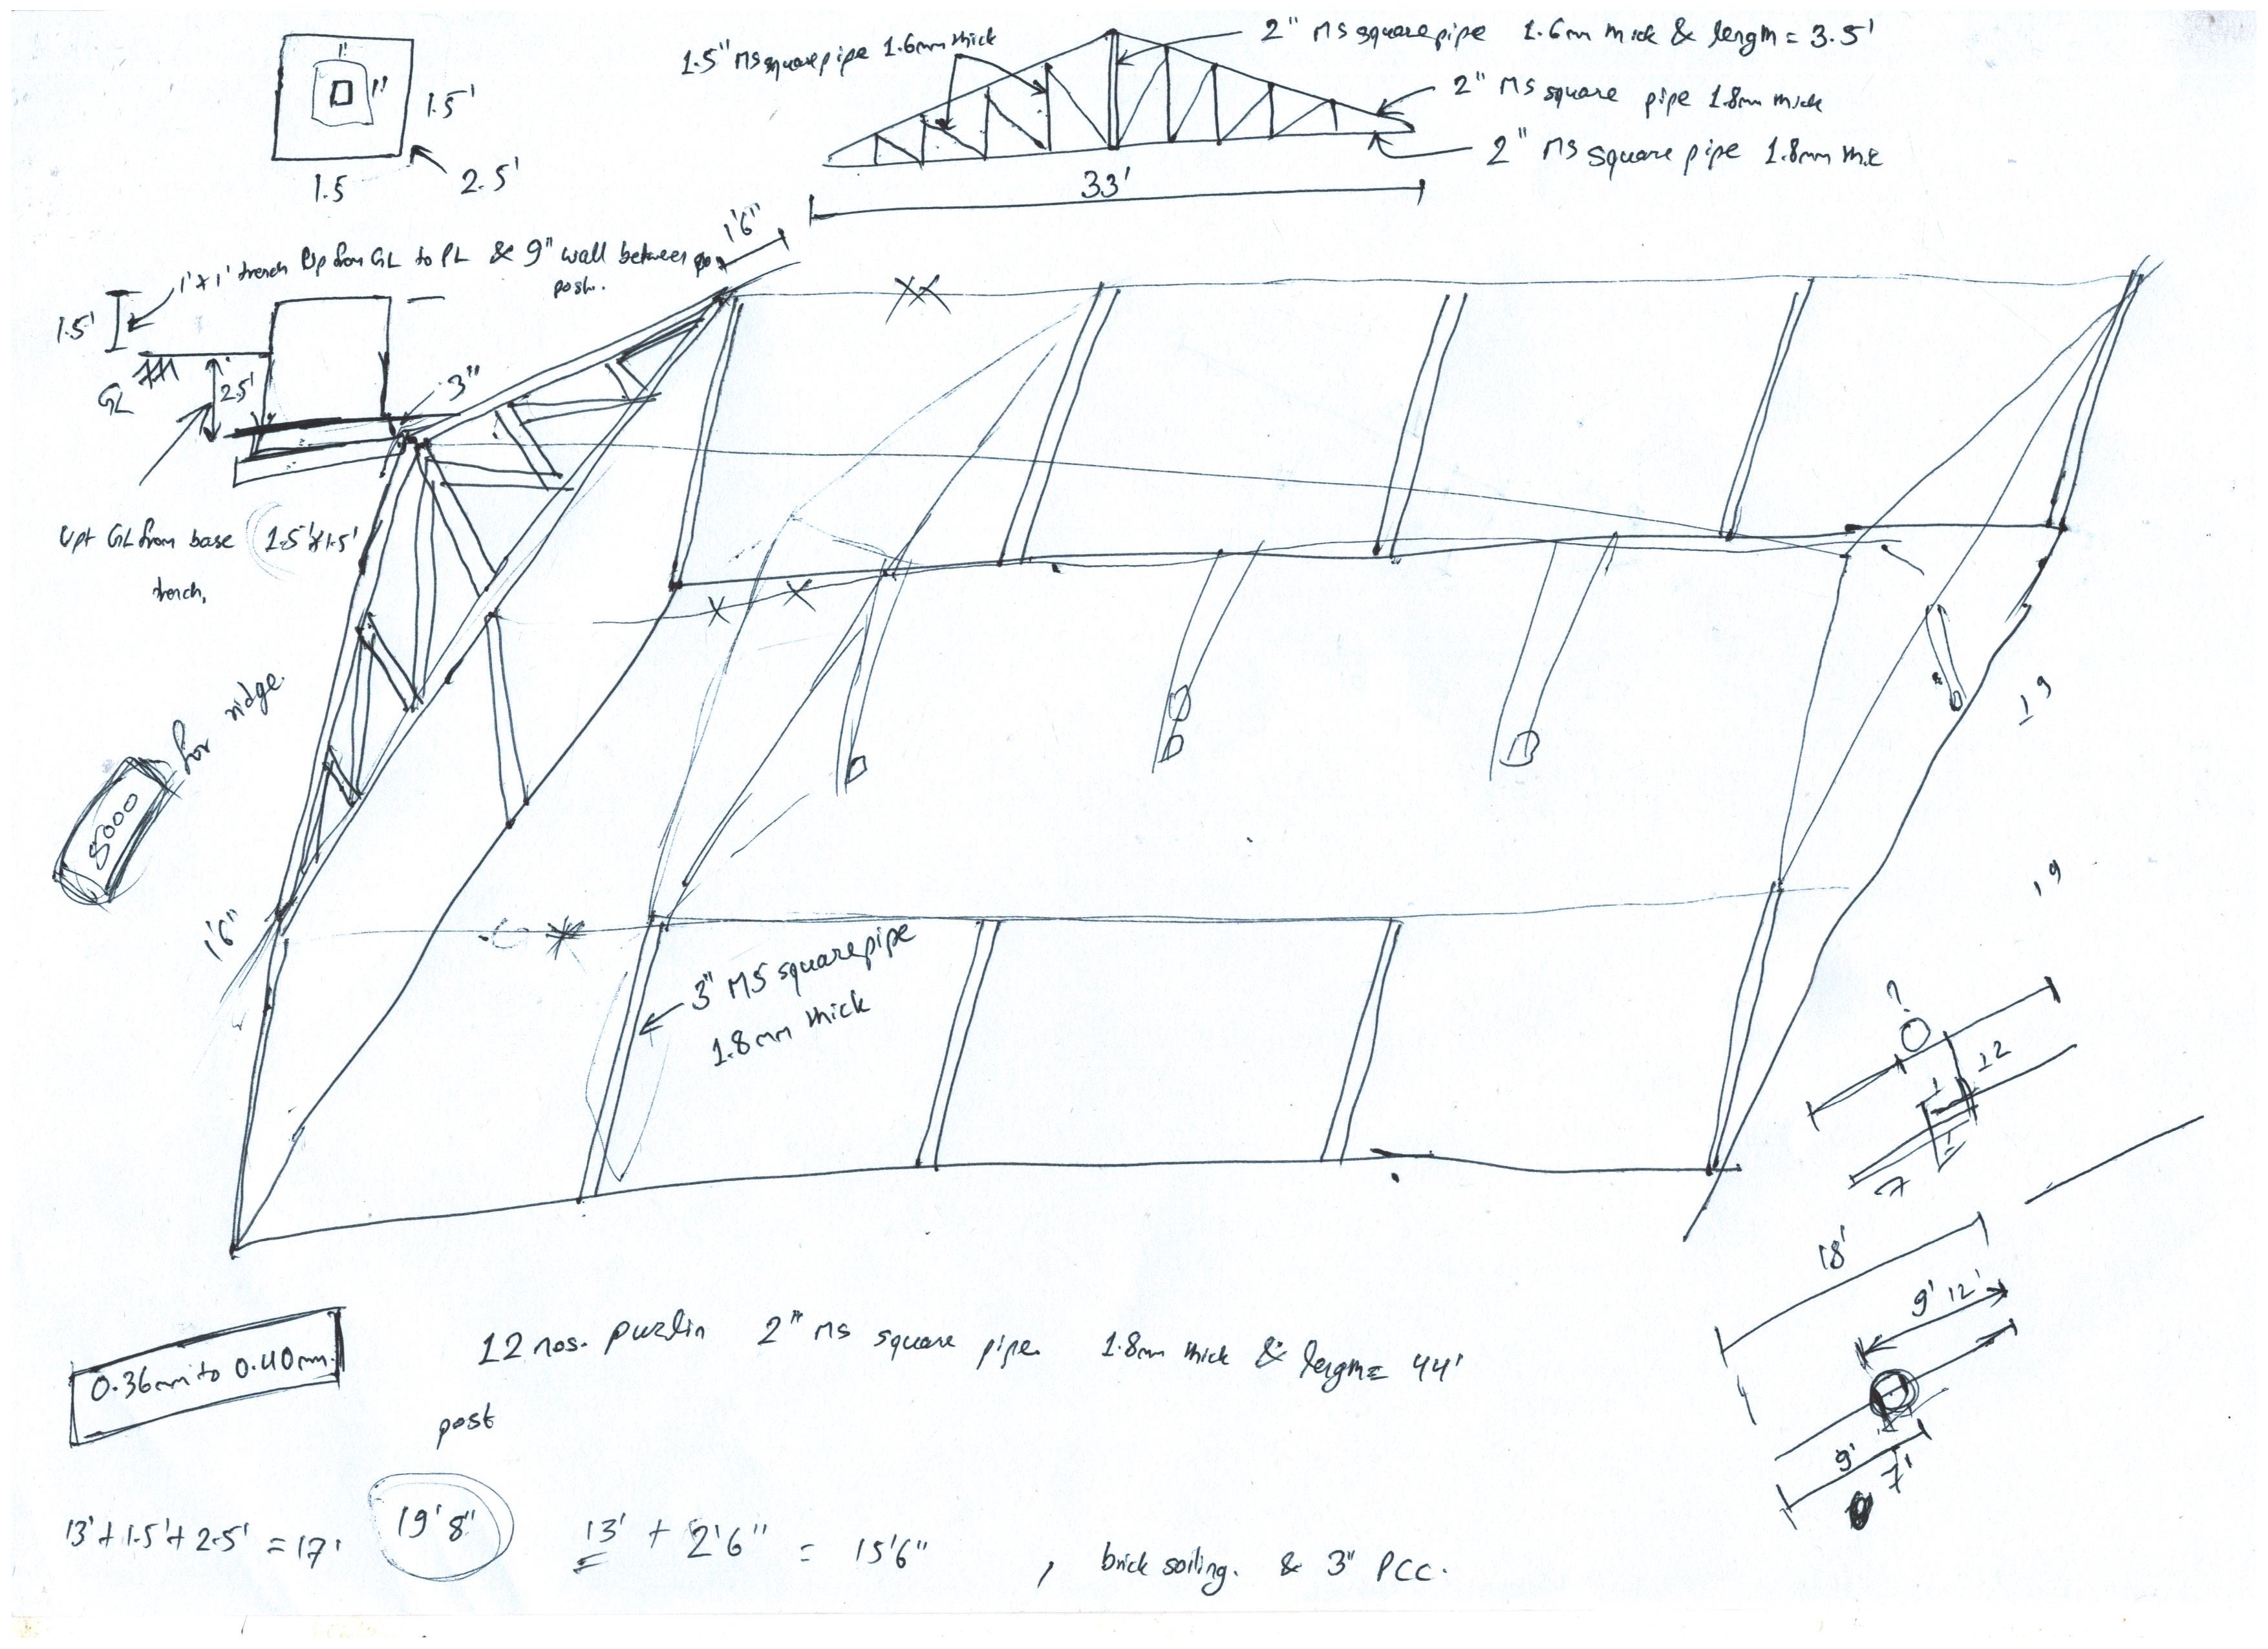 1"
1"
1.5'
1.5
2.5'
1.5" MS square pipe 1.6mm thick
2" MS square pipe 1.6mm thick & length = 3.5'
2" MS square pipe 1.8mm thick
2" MS square pipe 1.8mm thk
33'
1'6"
1'x1' trench Up from GL to PL & 9" wall between
post.
1.5'
GL
2.5'
3"
Upt GL from base 1.5'x1.5'
trench.
5000 for ridge.
1'6"
3" MS square pipe
1.8mm thick
19
19
?
12
1
1
7
18'
9' 12'
9'
7'
0.36mm to 0.40mm.
12 nos. purlin 2" MS square pipe 1.8mm thick & length = 44'
post
13' + 1.5' + 2.5' = 17'
19'8"
13' + 2'6" = 15'6"
, brick soiling. & 3" PCC.